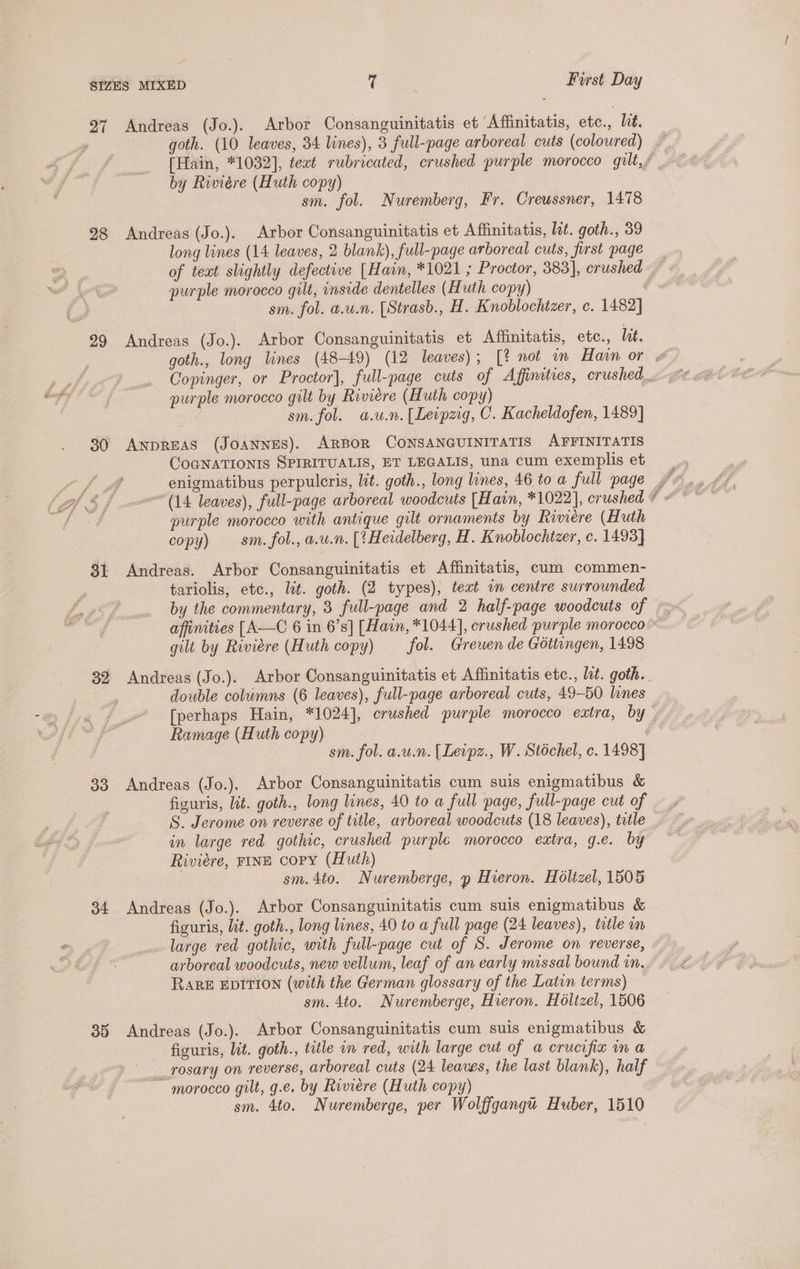 SIZES MIXED 7 First Day
27 Andreas (Jo.). Arbor Consanguinitatis et Affinitatis, etc., lit.
goth. (10 leaves, 34 lines), 3 full-page arboreal cuts (coloured)
[Hain, *1032], text rubricated, crushed purple morocco gilt,
by Rivière (Huth copy)
sm. fol. Nuremberg, Fr. Creussner, 1478
28 Andreas (Jo.). Arbor Consanguinitatis et Affinitatis, lit. goth., 39
long lines (14 leaves, 2 blank), full-page arboreal cuts, first page
of text slightly defective [Hain, *1021; Proctor, 383], crushed
purple morocco gilt, inside dentelles (Huth copy)
sm. fol. a.u.n. [Strasb., H. Knoblochtzer, c. 1482]
29 Andreas (Jo.). Arbor Consanguinitatis et Affinitatis, etc., lit.
goth., long lines (48-49) (12 leaves); [? not in Hain or
Copinger, or Proctor], full-page cuts of Affinities, crushed
purple morocco gilt by Rivière (Huth copy)
sm. fol. a.u.n. [Leipzig, C. Kacheldofen, 1489]
30 ANDREAS (JOANNES). ARBOR CONSANGUINITATIS AFFINITATIS
COGNATIONIS SPIRITUALIS, ET LEGALIS, una cum exemplis et
enigmatibus perpulcris, lit. goth., long lines, 46 to a full page
(14 leaves), full-page arboreal woodcuts [Hain, *1022], crushed
purple morocco with antique gilt ornaments by Rivière (Huth
copy) sm. fol., a.u.n. [? Heidelberg, H. Knoblochtzer, c. 1493]
31 Andreas. Arbor Consanguinitatis et Affinitatis, cum commen-
tariolis, etc., lit. goth. (2 types), text in centre surrounded
by the commentary, 3 full-page and 2 half-page woodcuts of
affinities [A—C 6 in 6's] [Hain, *1044], crushed purple morocco
gilt by Rivière (Huth copy) fol. Greuen de Göttingen, 1498
32 Andreas (Jo.). Arbor Consanguinitatis et Affinitatis etc., lit. goth.
double columns (6 leaves), full-page arboreal cuts, 49-50 lines
[perhaps Hain, *1024], crushed purple morocco extra, by
Ramage (Huth copy)
sm. fol. a.u.n. [Leipz., W. Stöchel, c. 1498]
33 Andreas (Jo.). Arbor Consanguinitatis cum suis enigmatibus &
figuris, lit. goth., long lines, 40 to a full page, full-page cut of
S. Jerome on reverse of title, arboreal woodcuts (18 leaves), title
in large red gothic, crushed purple morocco extra, g.e. by
Rivière, FINE COPY (Huth)
sm. 4to. Nuremberge, p Hieron. Höltzel, 1505
34 Andreas (Jo.). Arbor Consanguinitatis cum suis enigmatibus &
figuris, lit. goth., long lines, 40 to a full page (24 leaves), title in
large red gothic, with full-page cut of S. Jerome on reverse,
arboreal woodcuts, new vellum, leaf of an early missal bound in.
RARE EDITION (with the German glossary of the Latin terms)
sm. 4to. Nuremberge, Hieron. Höltzel, 1506
35 Andreas (Jo.). Arbor Consanguinitatis cum suis enigmatibus &
figuris, lit. goth., title in red, with large cut of a crucifix in a
rosary on reverse, arboreal cuts (24 leaves, the last blank), half
morocco gilt, g.e. by Rivière (Huth copy)
sm. 4to. Nuremberge, per Wolffgangū Huber, 1510